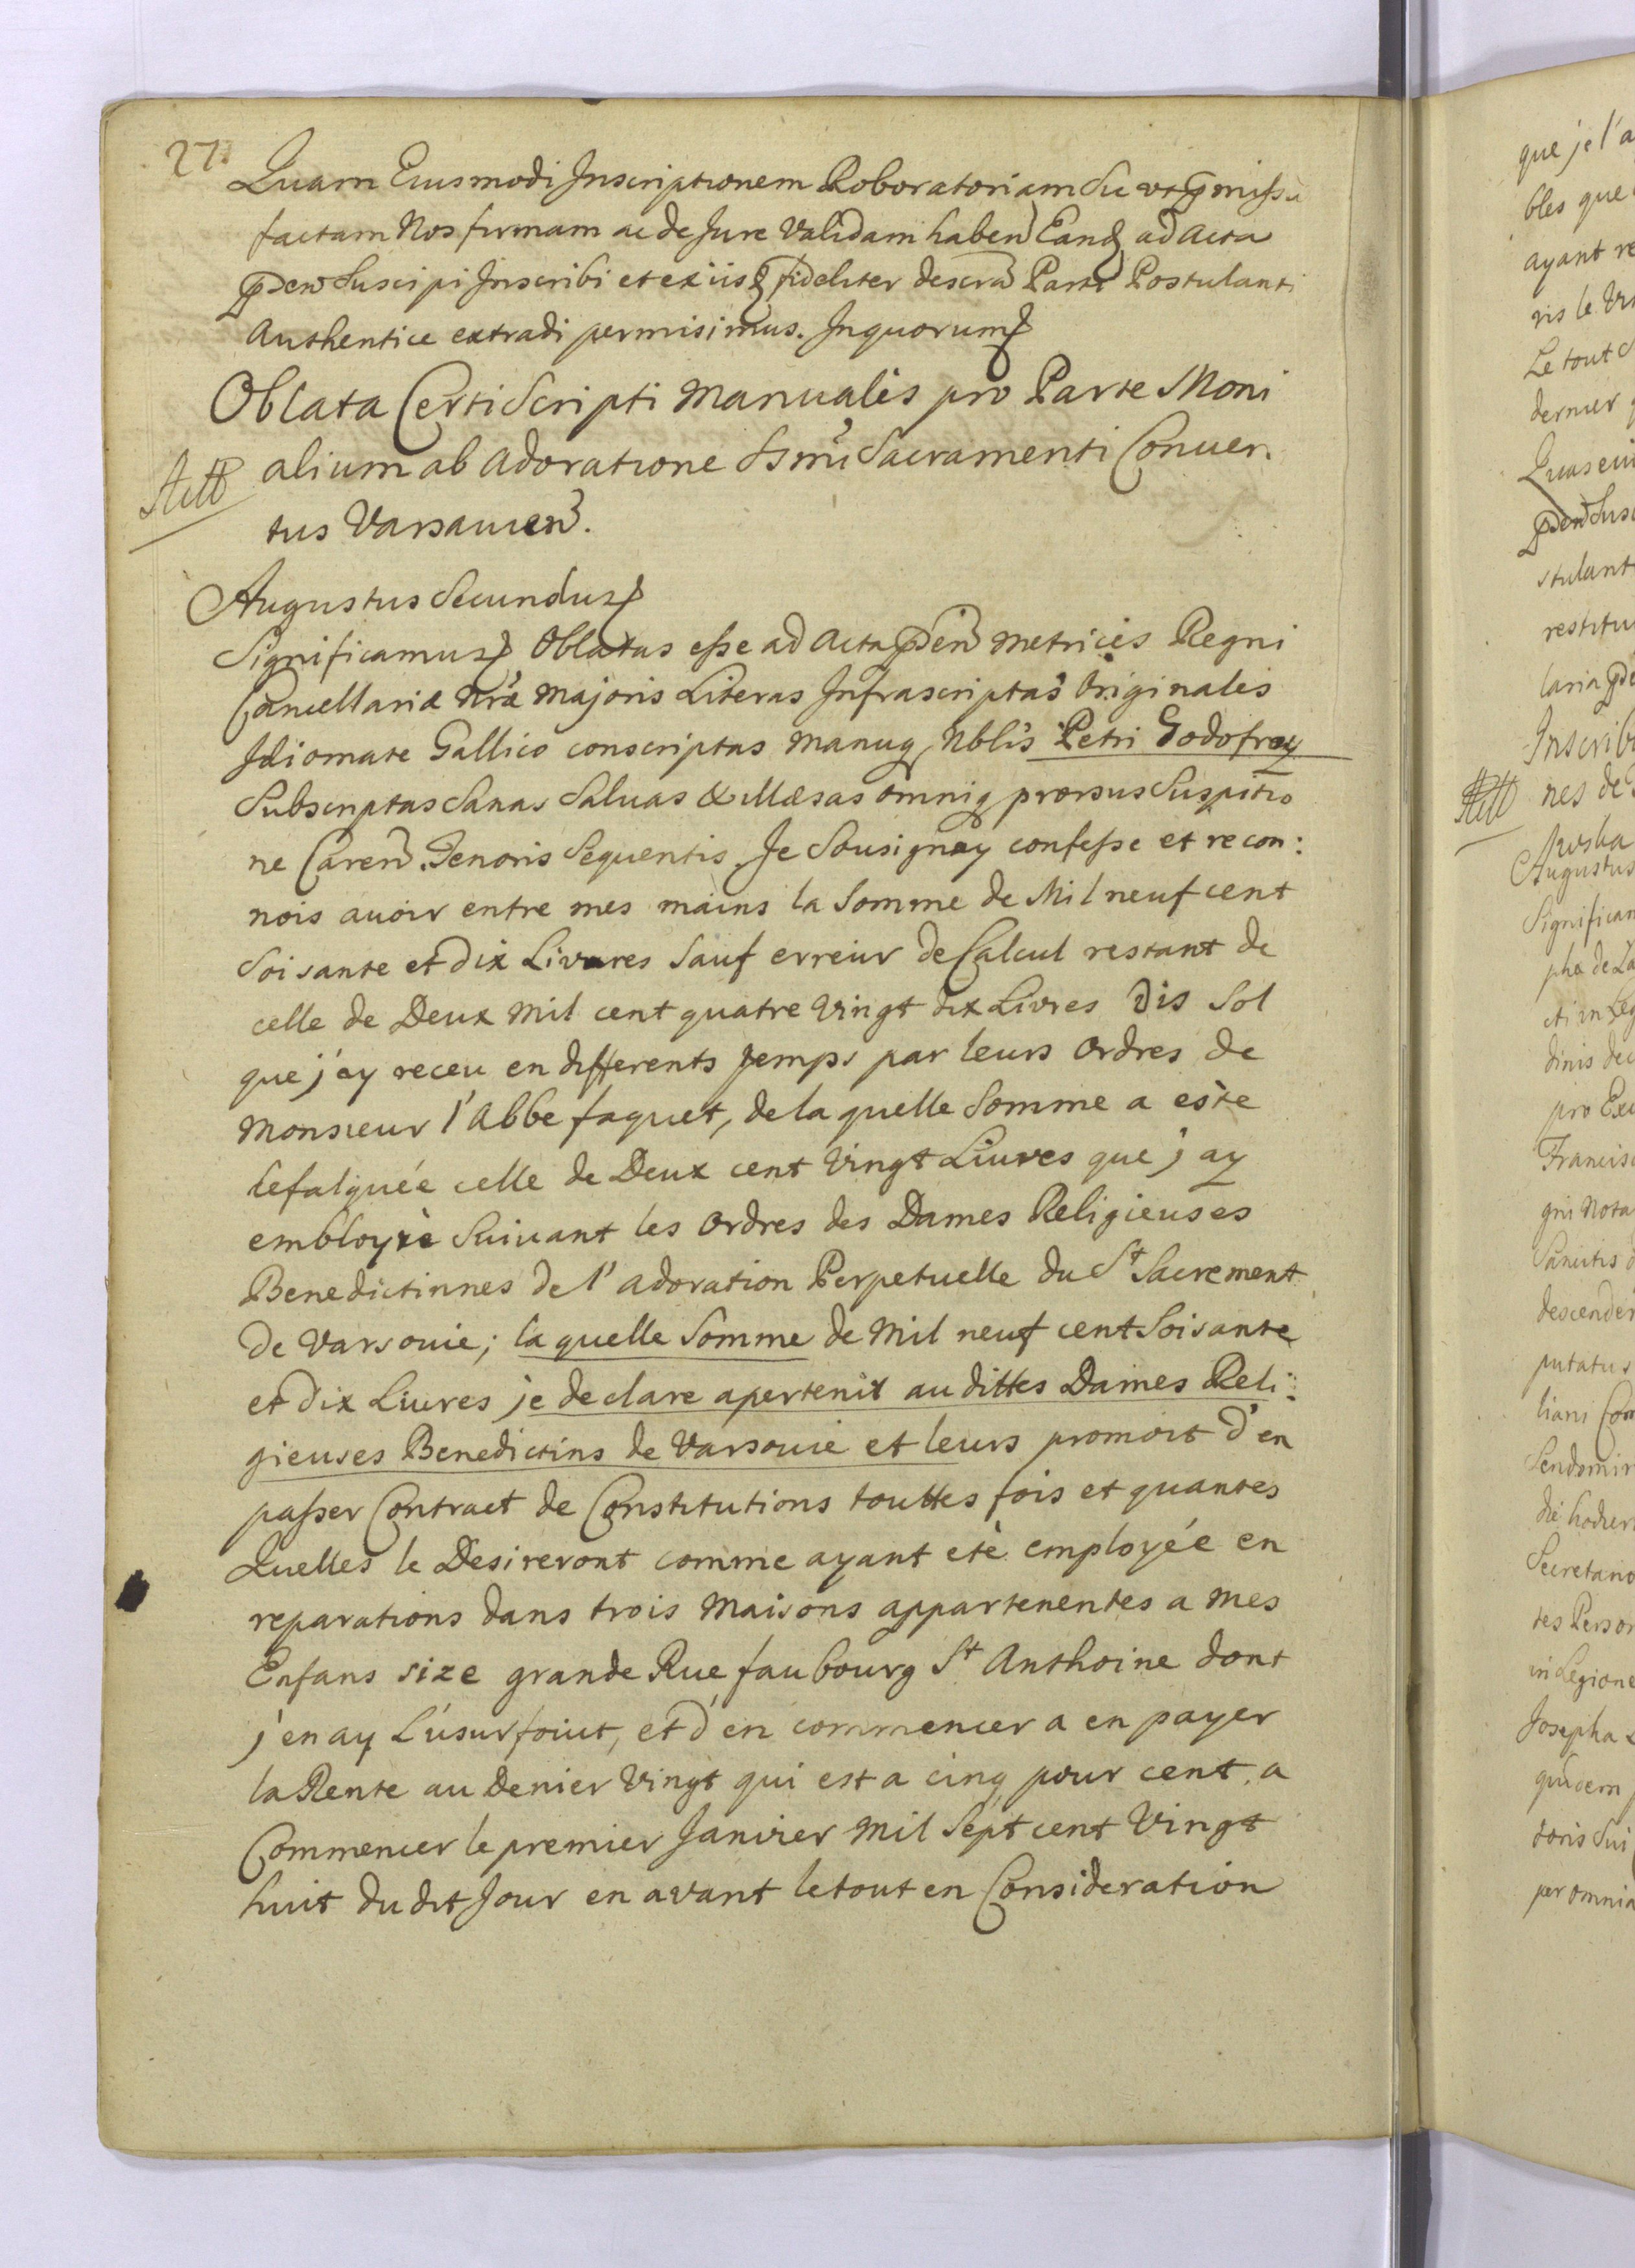 27
Quam Eiusmodi Inscriptionem Roboratoriam Su
factam Nos firmam ac de Jure Validam haben Eand ad Acta
pden Suscipi Inscribi et ex iisd fideliter descra Parti Postulanti
Authentice extradi permisimus. In quorum
Oblata Certi Scripti Manualis pro Parte Moni
alium ab Adoratione Ssmi Sacramenti Conuen
tus Varsauien.
Augustus Secundus
Significamus Oblatas esse ad Acta pden Metrices Regni
Cancellariæ Nræ Majoris Literas Infrascriptas Originales
Idiomate Gallico conscriptas Manuq Nblis Petri Godofroy
Subscriptas Sanas Saluas & Illæsas omniq prorsus Suspitio
ne Caren. Tenoris Sequentis. Je Sousignay confesse et recon:
nois auoir entre mes mains la Somme de Mil neuf cent
Soisante et dix Livres Sauf erreur de Calcul restant de
celle de Deux Mil cent quatre Vingt dix Livres dis Sol
que j'ay receu en differents Temps par leurs Ordres de
Monsieur l'Abbe faquet, de la quelle Somme a estè
defalquée celle de Deux cent Vingt Liures que j'ay
embloyrè Suiuant les Ordres des Dames Religieuses
Benedictinnes de l'adoration Perpetuelle du St Sacrement
de Varsouie; la quelle Somme de Mil neuf cent Soisante
et dix Liures je declare apertenir au dittes Dames Reli:
gieuses Benedictins de Varsouie et leurs promoit d'en
passer Contract de Constitutions touttes fois et quantes
Quelles le Desireront comme ayant etè employée en
reparations dans trois Maisons appartenentes a mes
Enfans size grande Rue faubourg St Anthoine dont
j'en ay L'usurfoiut, et d'en commencer a en payer
la Rente au Denier Vingt qui est a cinq pour cent, a
Commencer le premier Janvier Mil Sept cent Vingt
huit du dit Jour en avant le tout en Consideration
que je l'a
bles que
ayant re
ris le
Le tout
dernier
pden Susc
stulant
restitu
laria
Inscrib
nes de
Augustus
Significam
pha de La
dinis
pro
Francis
gni Nota
descender
putatus
liani Com
Sendomir
die hodier
Secretario
tes Person
in Legione
Josepha
quidem
doris Sui
per omnia